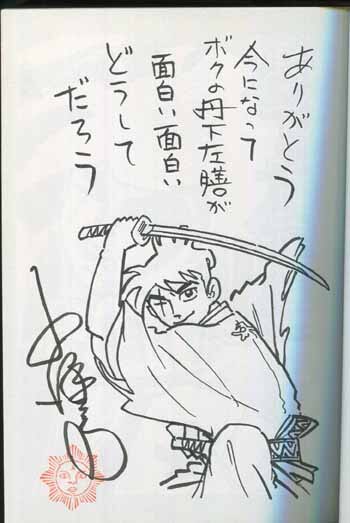 ありがとう
今になって
ボクの丹下左膳が
面白い面白い
どうして
だろう